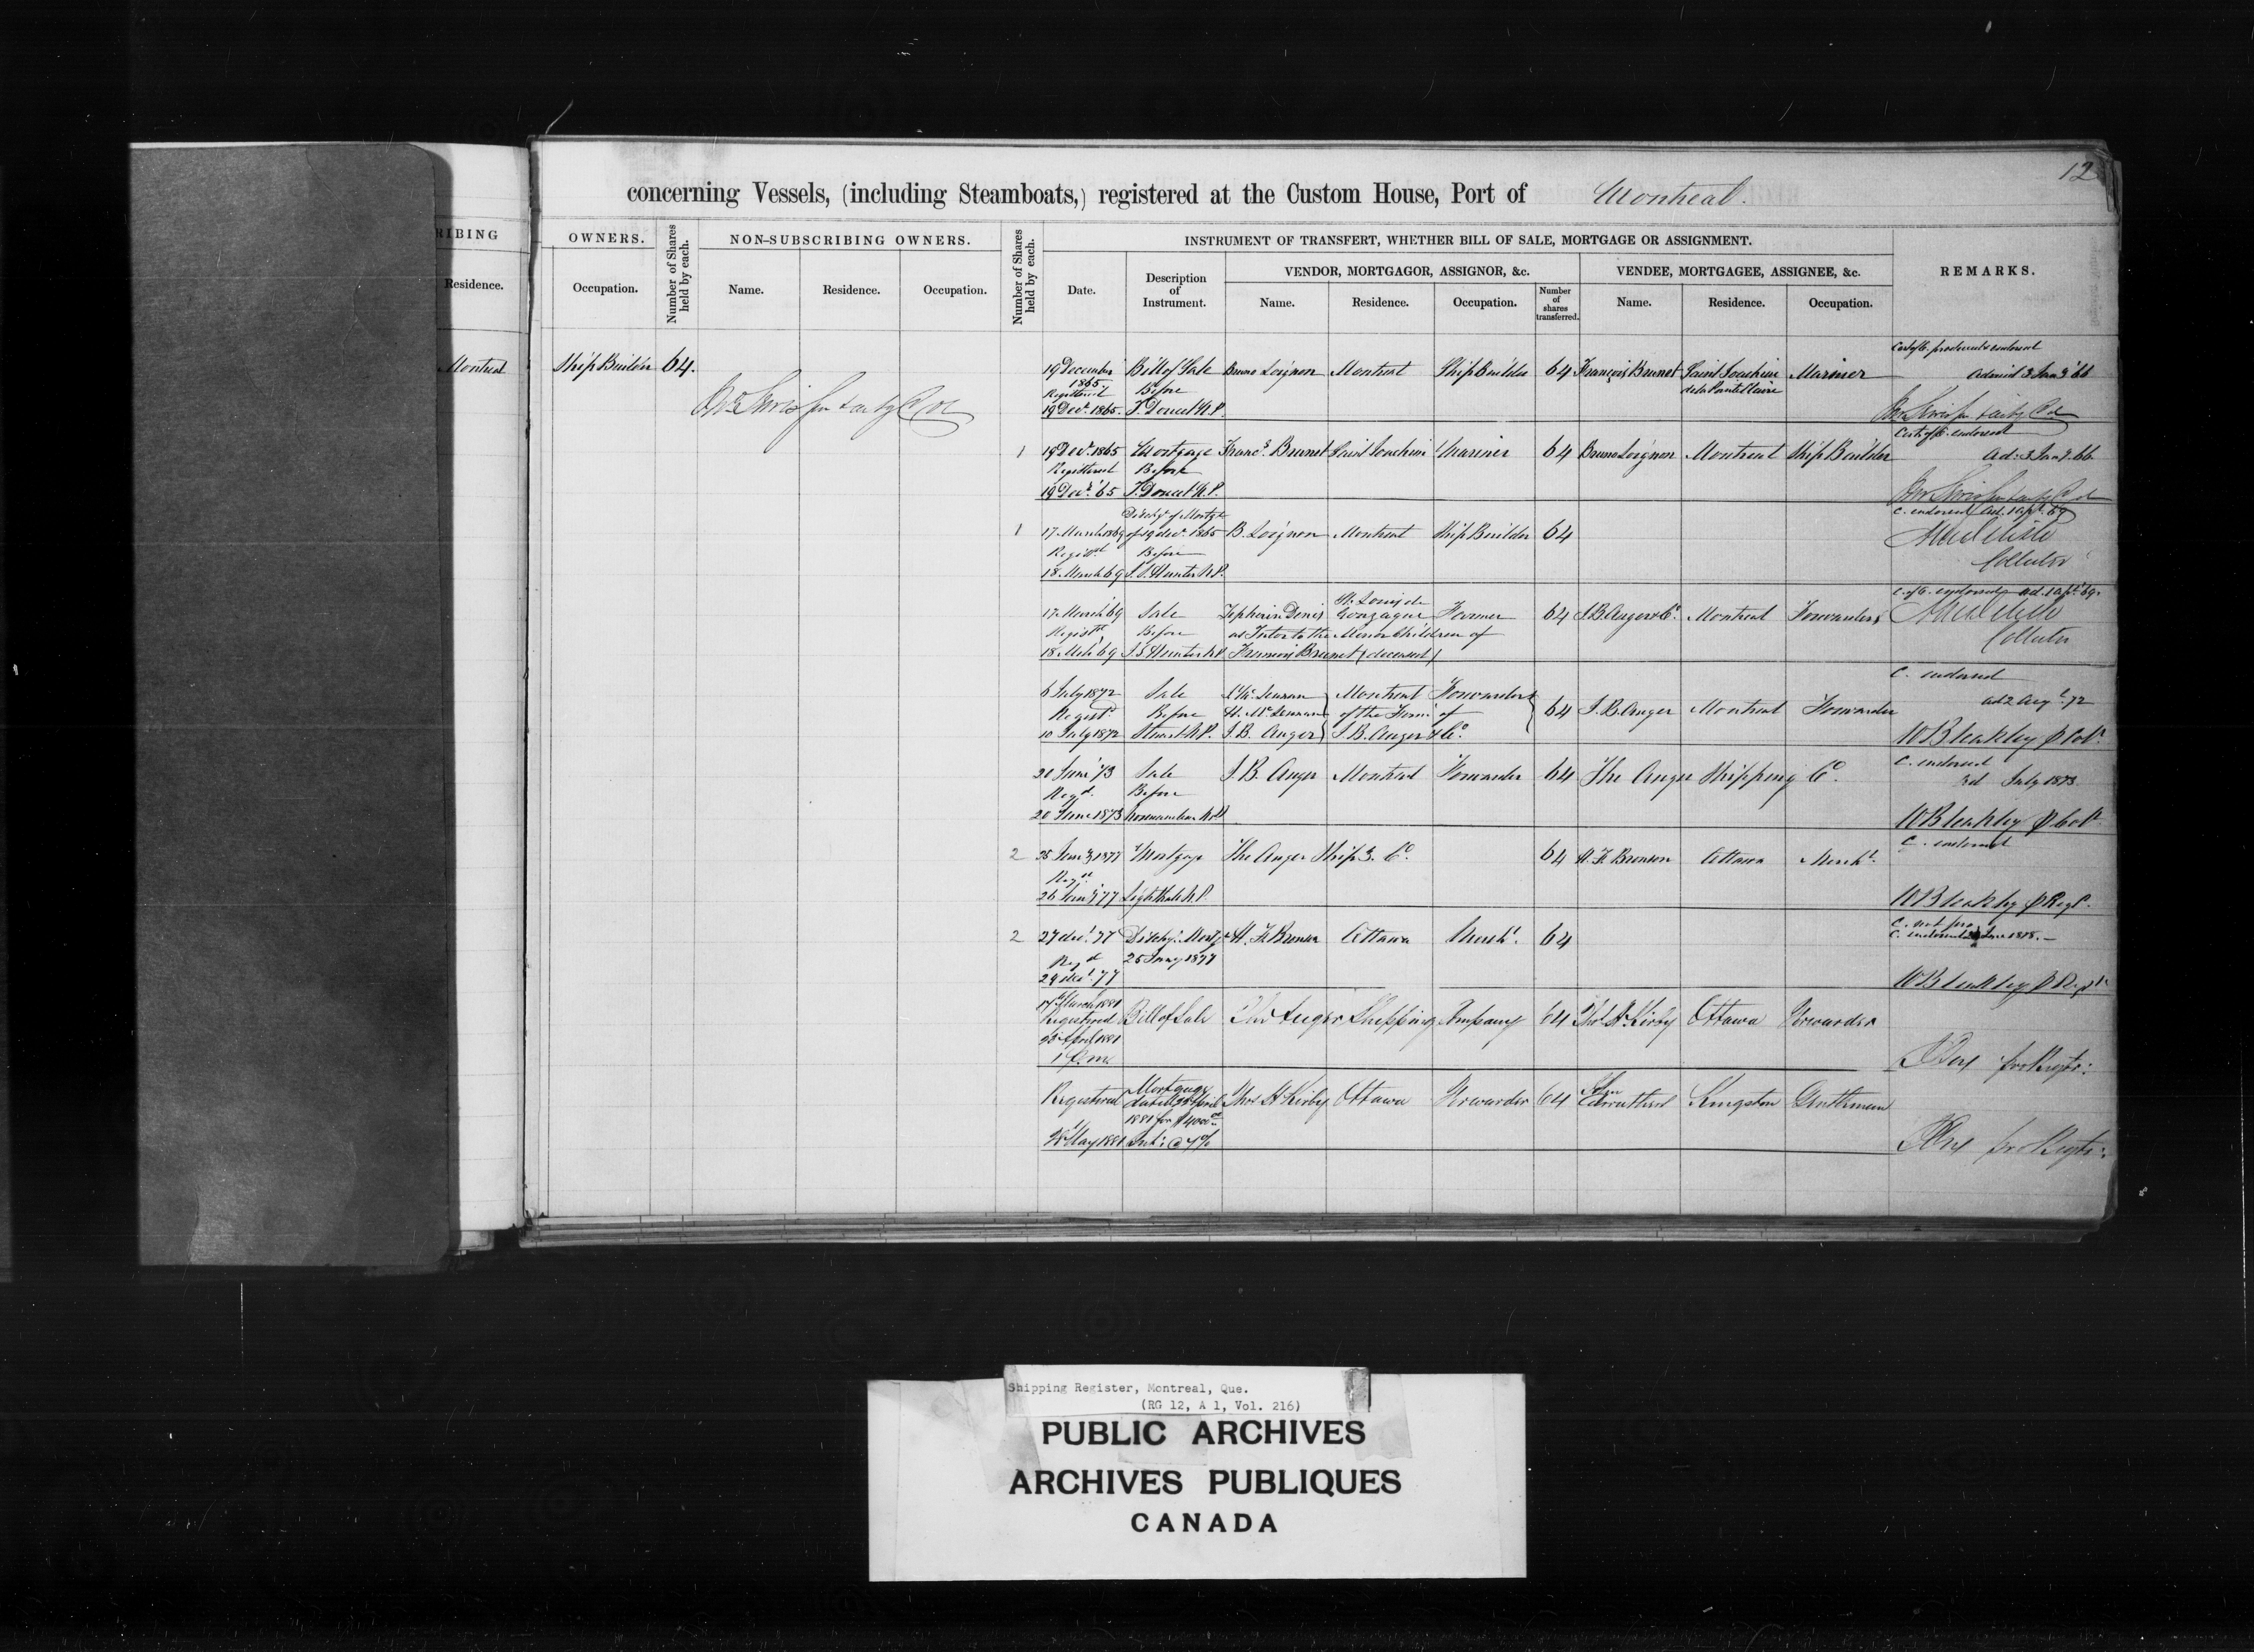 12
concerning Vessels, (including Steamboats,) registered at the Custom House, Port of Montreal.
RIBING
OWNERS.
Number of Shares held by each.
NON-SUBSCRIBING OWNERS.
Number of Shares held by each.
INSTRUMENT OF TRANSFERT, WHETHER BILL OF SALE, MORTGAGE OR ASSIGNMENT.
REMARKS.
VENDOR, MORTGAGOR, ASSIGNOR, &c.
VENDEE, MORTGAGEE, ASSIGNEE, &c.
Residence.
Occupation.
Name.
Residence.
Occupation.
Date.
Description of Instrument.
Name.
Residence.
Occupation.
Number of shares transferred.
Name.
Residence.
Occupation.
Montreal Ship Builder 64.
19 December Bill of Sale Bruno Loignon Montreal Ship Builder 64 François Brunet Saint Joachim Mariner
1865. Before de la Pointe Claire
Registered
19 Decr. 1865. J. Doucet N.P.
1 19 Decr. 1865 Mortgage Francs. Brunet Saint Joachim Mariner 64 Bruno Loignon Montreal Ship Builder
Registered Before
19 Decr. '65 J. Doucet N.P.
Ad. 3 Jany. 66
Dischge of Mortge
1 17 March 1869 of 19 decr. 1865 B. Loignon Montreal Ship Builder 64
Registd Before
18 March 69 J. S. Hunter N.P.
C. endorsed ad. 1 apl. 69
Collector
17 March 69 Sale Zepherin Denis St. Louis de Gonzague Farmer 64 J. B. Auger & Co. Montreal Forwarders
Registd Before as Tutor to the Minor Children of
18 Mch 69 J. S. Hunter N.P. Francois Brunet (deceased)
C. of O. endorsed ad. 1 apl. 69.
Collector
6 July 1872 Sale Montreal Forwarders
Registd. Before H. McLennan of the Firm of 64 J. B. Auger Montreal Forwarder
10 July 1872 Stuart N.P. J. B. Auger J. B. Auger & Co.
C. endorsed
ad 2 Augt. 72
W Bleakley
20 June '73 Sale J. B. Auger Montreal Forwarder 64 The Auger Shipping Co.
Regd. Before
20 June 1873
C. endorsed
3d July 1873
W Bleakley
2 25 Jany 1877 Mortgage The Auger Shipg. Co. 64 H. F. Bronson Ottawa Mercht.
Regd.
26 Jany 77 Lighthall N.P.
C. endorsed
W Bleakley p Regr.
2 27 decr. 77 Dischge. Mortge H. F. Bronson Ottawa Mercht. 64
Regd 25 Jany 1877
29 decr. 77
W Bleakley p Regr.
17th March 1881
Registered Bill of Sale The Auger Shipping Company 64 Thos. H. Kirby Ottawa Forwarder
25 April 1881
1 P.m.
pro Regtr:
Mortgage
Registered dated 25 April Thos H Kirby Ottawa Forwarder 64 John Carruthers Kingston Gentleman
1881 for $4000
May 1881 Int: @ 7%
pro Regtr:
Shipping Register, Montreal, Que.
(RG 12, A 1, Vol. 216)
PUBLIC ARCHIVES
ARCHIVES PUBLIQUES
CANADA